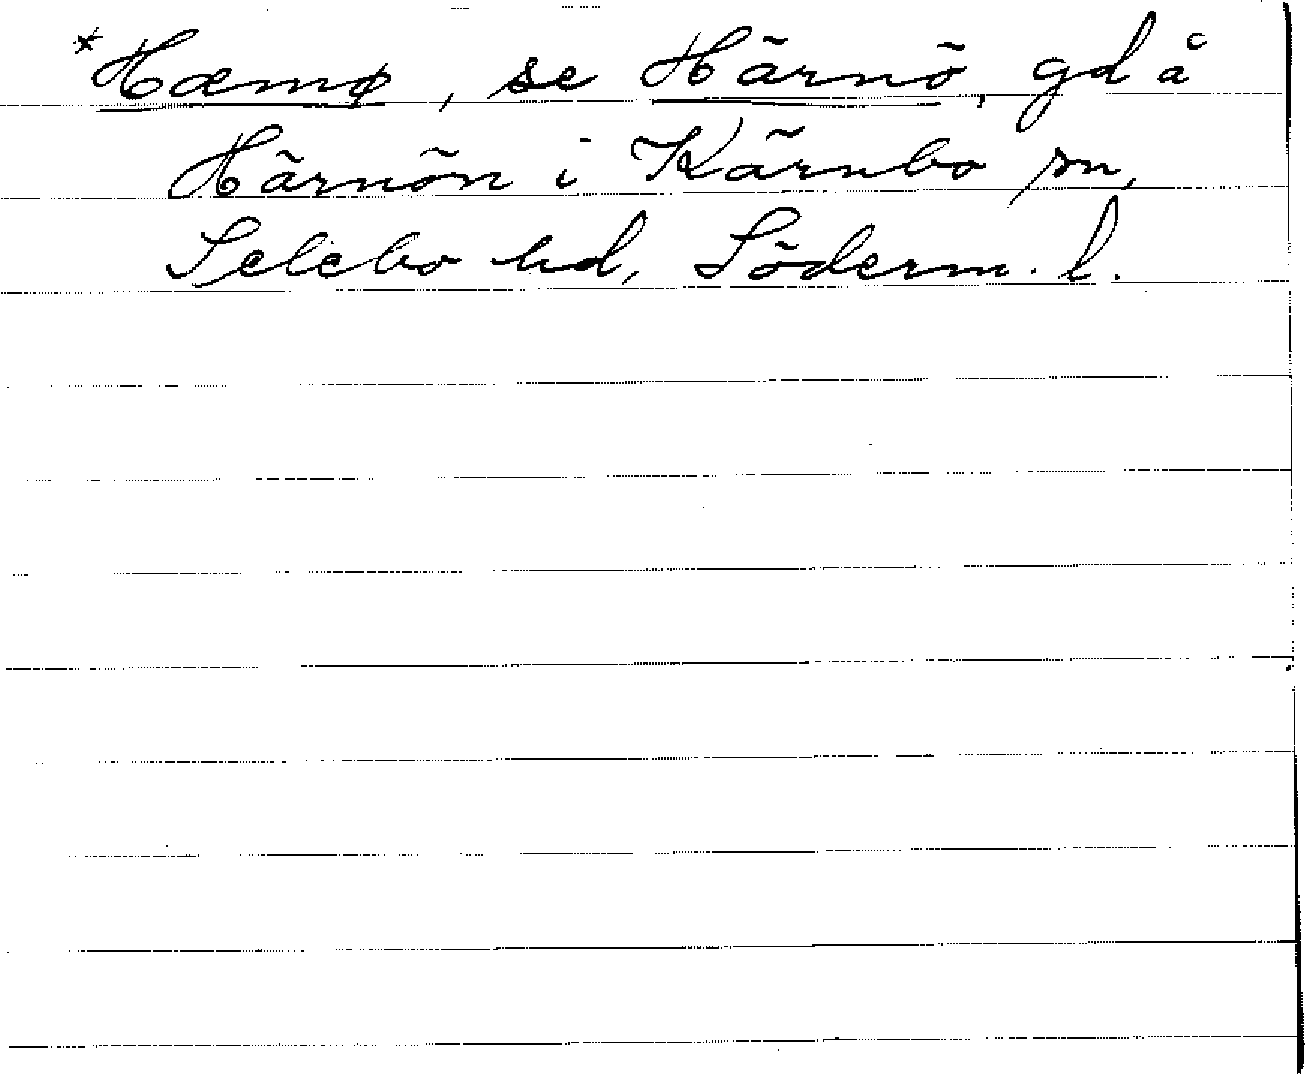 *Hæmø, se Härnö, gd å
Härnön i Kärnbo sn,
Selebo hd, Söderm. l.